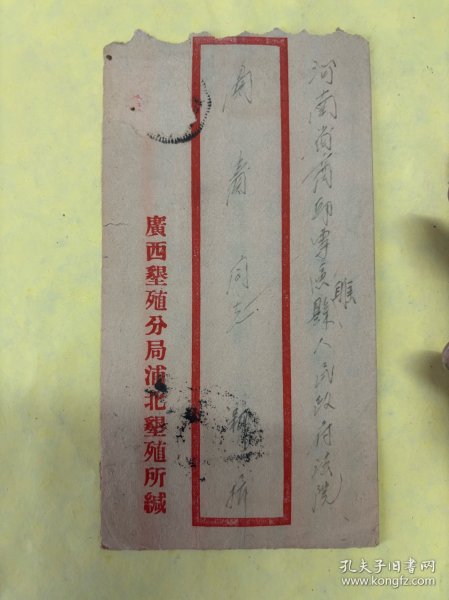 河南省商邱專區睢縣人民政府法院
周 同志
廣西墾殖分局浦北墾殖所緘
孔夫子旧书网
www.kongfz.com